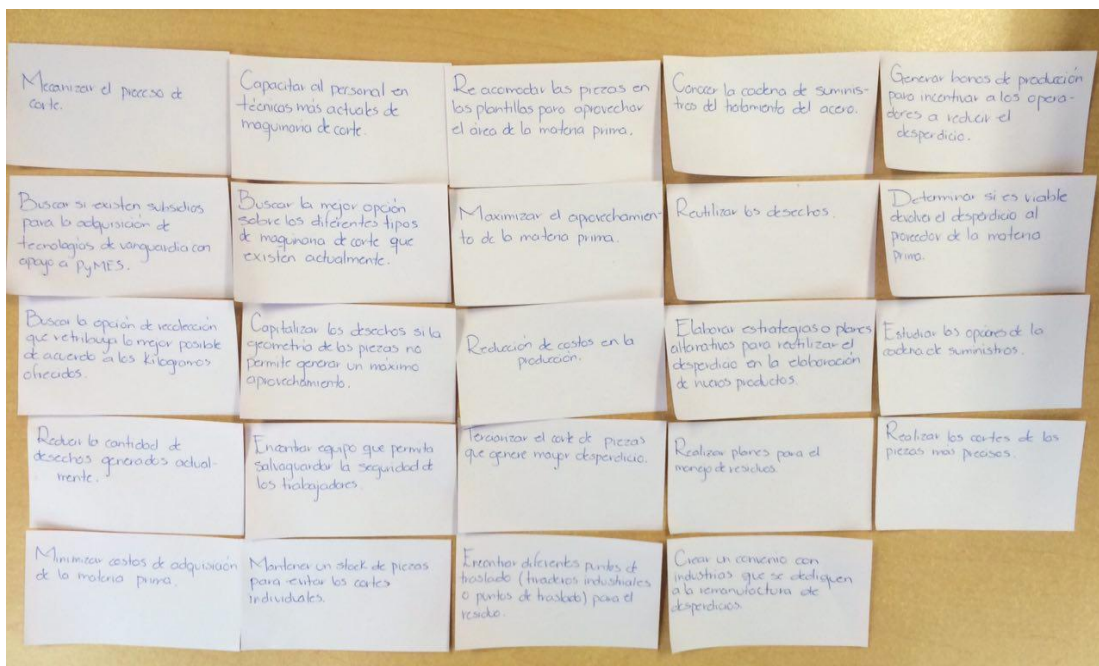 Mecanizar el proceso de
corte.
Capacitar al personal en
técnicas más actuales de
maquinaria de corte.
Re acomodar las piezas en
las plantillas para aprovechar
el área de la materia prima.
Conocer la cadena de suminis-
tros del tratamiento del acero.
Generar bonos de producción
para incentivar a los opera-
dores a reducir el
desperdicio.
Buscar si existen subsidios
para la adquisición de
tecnologías de vanguardia con
apoyo a PyMES.
Buscar la mejor opción
sobre los diferentes tipos
de maquinaria de corte que
existen actualmente.
Maximizar el aprovechamien-
to de la materia prima.
Reutilizar los desechos.
Determinar si es viable
devolver el desperdicio al
proveedor de la materia
prima.
Buscar la opción de recolección
que retribuya lo mejor posible
de acuerdo a los kilogramos
ofrecidos.
Capitalizar los desechos si la
geometría de las piezas no
permite generar un máximo
aprovechamiento.
Reducción de costos en la
producción.
Elaborar estrategias o planes
alternativos para reutilizar el
desperdicio en la elaboración
de nuevos productos.
Estudiar las opciones de la
cadena de suministros.
Reducir la cantidad de
desechos generados actual-
mente.
Encontrar equipo que permita
salvaguardar la seguridad de
los trabajadores.
Tercerizar el corte de piezas
que genere mayor desperdicio.
Realizar planes para el
manejo de residuos.
Realizar los cortes de las
piezas más precisos.
Minimizar costos de adquisición
de la materia prima.
Mantener un stock de piezas
para evitar los cortes
individuales.
Encontrar diferentes puntos de
traslado (tiraderos industriales
o puntos de traslado) para el
residuo.
Crear un convenio con
industrias que se dediquen
a la remanufactura de
desperdicios.